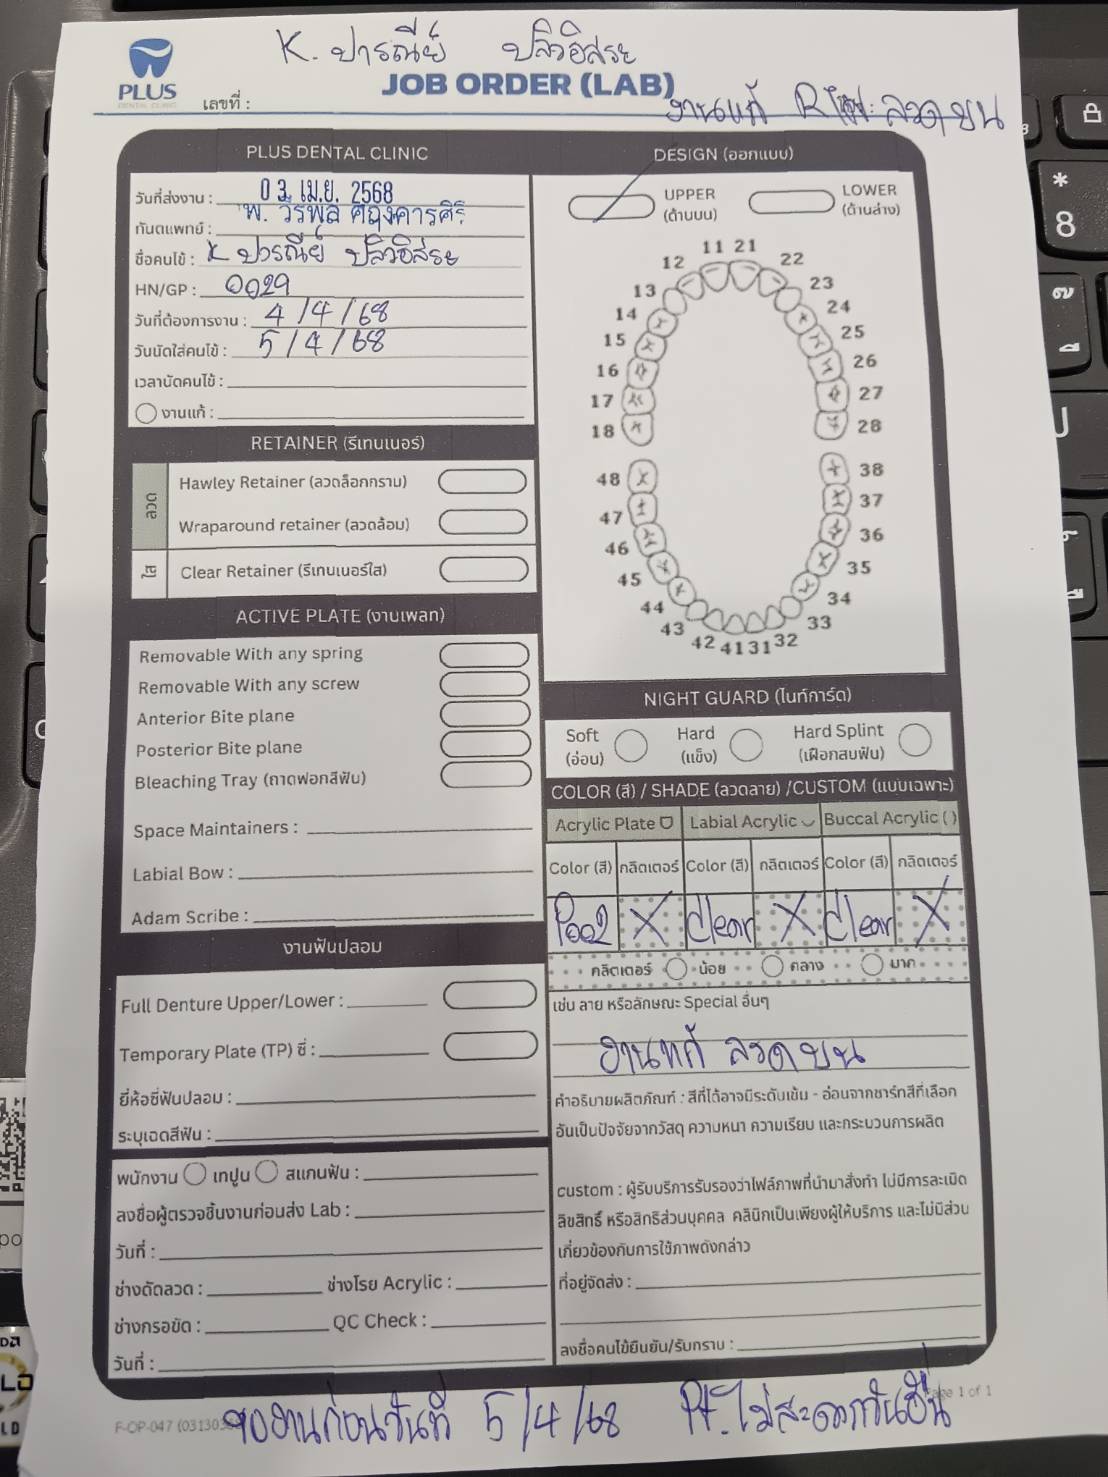 K. ปารณีย์ ปลิวอิสระ
PLUS
DENTAL CLINIC
เลขที่ :
JOB ORDER (LAB)
งานแก้ ลวด บน
PLUS DENTAL CLINIC
วันที่ส่งงาน : 03 เม.ย. 2568
ทันตแพทย์ : พ. วีรพล
ชื่อคนไข้ : K ปารณีย์ ปลิวอิสระ
HN/GP : 0029
วันที่ต้องการงาน : 4/4/68
วันนัดใส่คนไข้ : 5/4/68
เวลานัดคนไข้ :
งานแก้ :
RETAINER (รีเทนเนอร์)
ลวด
Hawley Retainer (ลวดล็อกกราม)
Wraparound retainer (ลวดล้อม)
ใส
Clear Retainer (รีเทนเนอร์ใส)
ACTIVE PLATE (งานเพลท)
Removable With any spring
Removable With any screw
Anterior Bite plane
Posterior Bite plane
Bleaching Tray (ถาดฟอกสีฟัน)
Space Maintainers :
Labial Bow :
Adam Scribe :
งานฟันปลอม
Full Denture Upper/Lower :
Temporary Plate (TP) ซี่ :
ยี่ห้อซี่ฟันปลอม :
ระบุเฉดสีฟัน :
พนักงาน เทปูน สแกนฟัน :
ลงชื่อผู้ตรวจชิ้นงานก่อนส่ง Lab :
วันที่ :
ช่างดัดลวด : ช่างโรย Acrylic :
ช่างกรอขัด : QC Check :
วันที่ :
DESIGN (ออกแบบ)
UPPER
(ด้านบน)
LOWER
(ด้านล่าง)
11 21
12 22
13 23
14 24
15 25
16 26
17 27
18 28
48 38
47 37
46 36
45 35
44 34
43 33
42 41 31 32
NIGHT GUARD (ไนท์การ์ด)
Soft
(อ่อน)
Hard
(แข็ง)
Hard Splint
(เฝือกสบฟัน)
COLOR (สี) / SHADE (ลวดลาย) /CUSTOM (แบบเฉพาะ)
Acrylic Plate Labial Acrylic Buccal Acrylic ( )
Color (สี) กลิตเตอร์ Color (สี) กลิตเตอร์ Color (สี) กลิตเตอร์
P002 X Clear X Clear X
กลิตเตอร์ น้อย กลาง มาก
เช่น ลาย หรือลักษณะ Special อื่นๆ
งานแก้ ลวด บน
คำอธิบายผลิตภัณฑ์ : สีที่ได้อาจมีระดับเข้ม - อ่อนจากชาร์ทสีที่เลือก
อันเป็นปัจจัยจากวัสดุ ความหนา ความเรียบ และกระบวนการผลิต
custom : ผู้รับบริการรับรองว่าไฟล์ภาพที่นำมาสั่งทำ ไม่มีการละเมิด
ลิขสิทธิ์ หรือสิทธิส่วนบุคคล คลินิกเป็นเพียงผู้ให้บริการ และไม่มีส่วน
เกี่ยวข้องกับการใช้ภาพดังกล่าว
ที่อยู่จัดส่ง :
ลงชื่อคนไข้ยืนยัน/รับทราบ :
Page 1 of 1
F-OP-047
ของานก่อนวันที่ 5/4/68 Pt. ไม่สะดวกวันอื่น